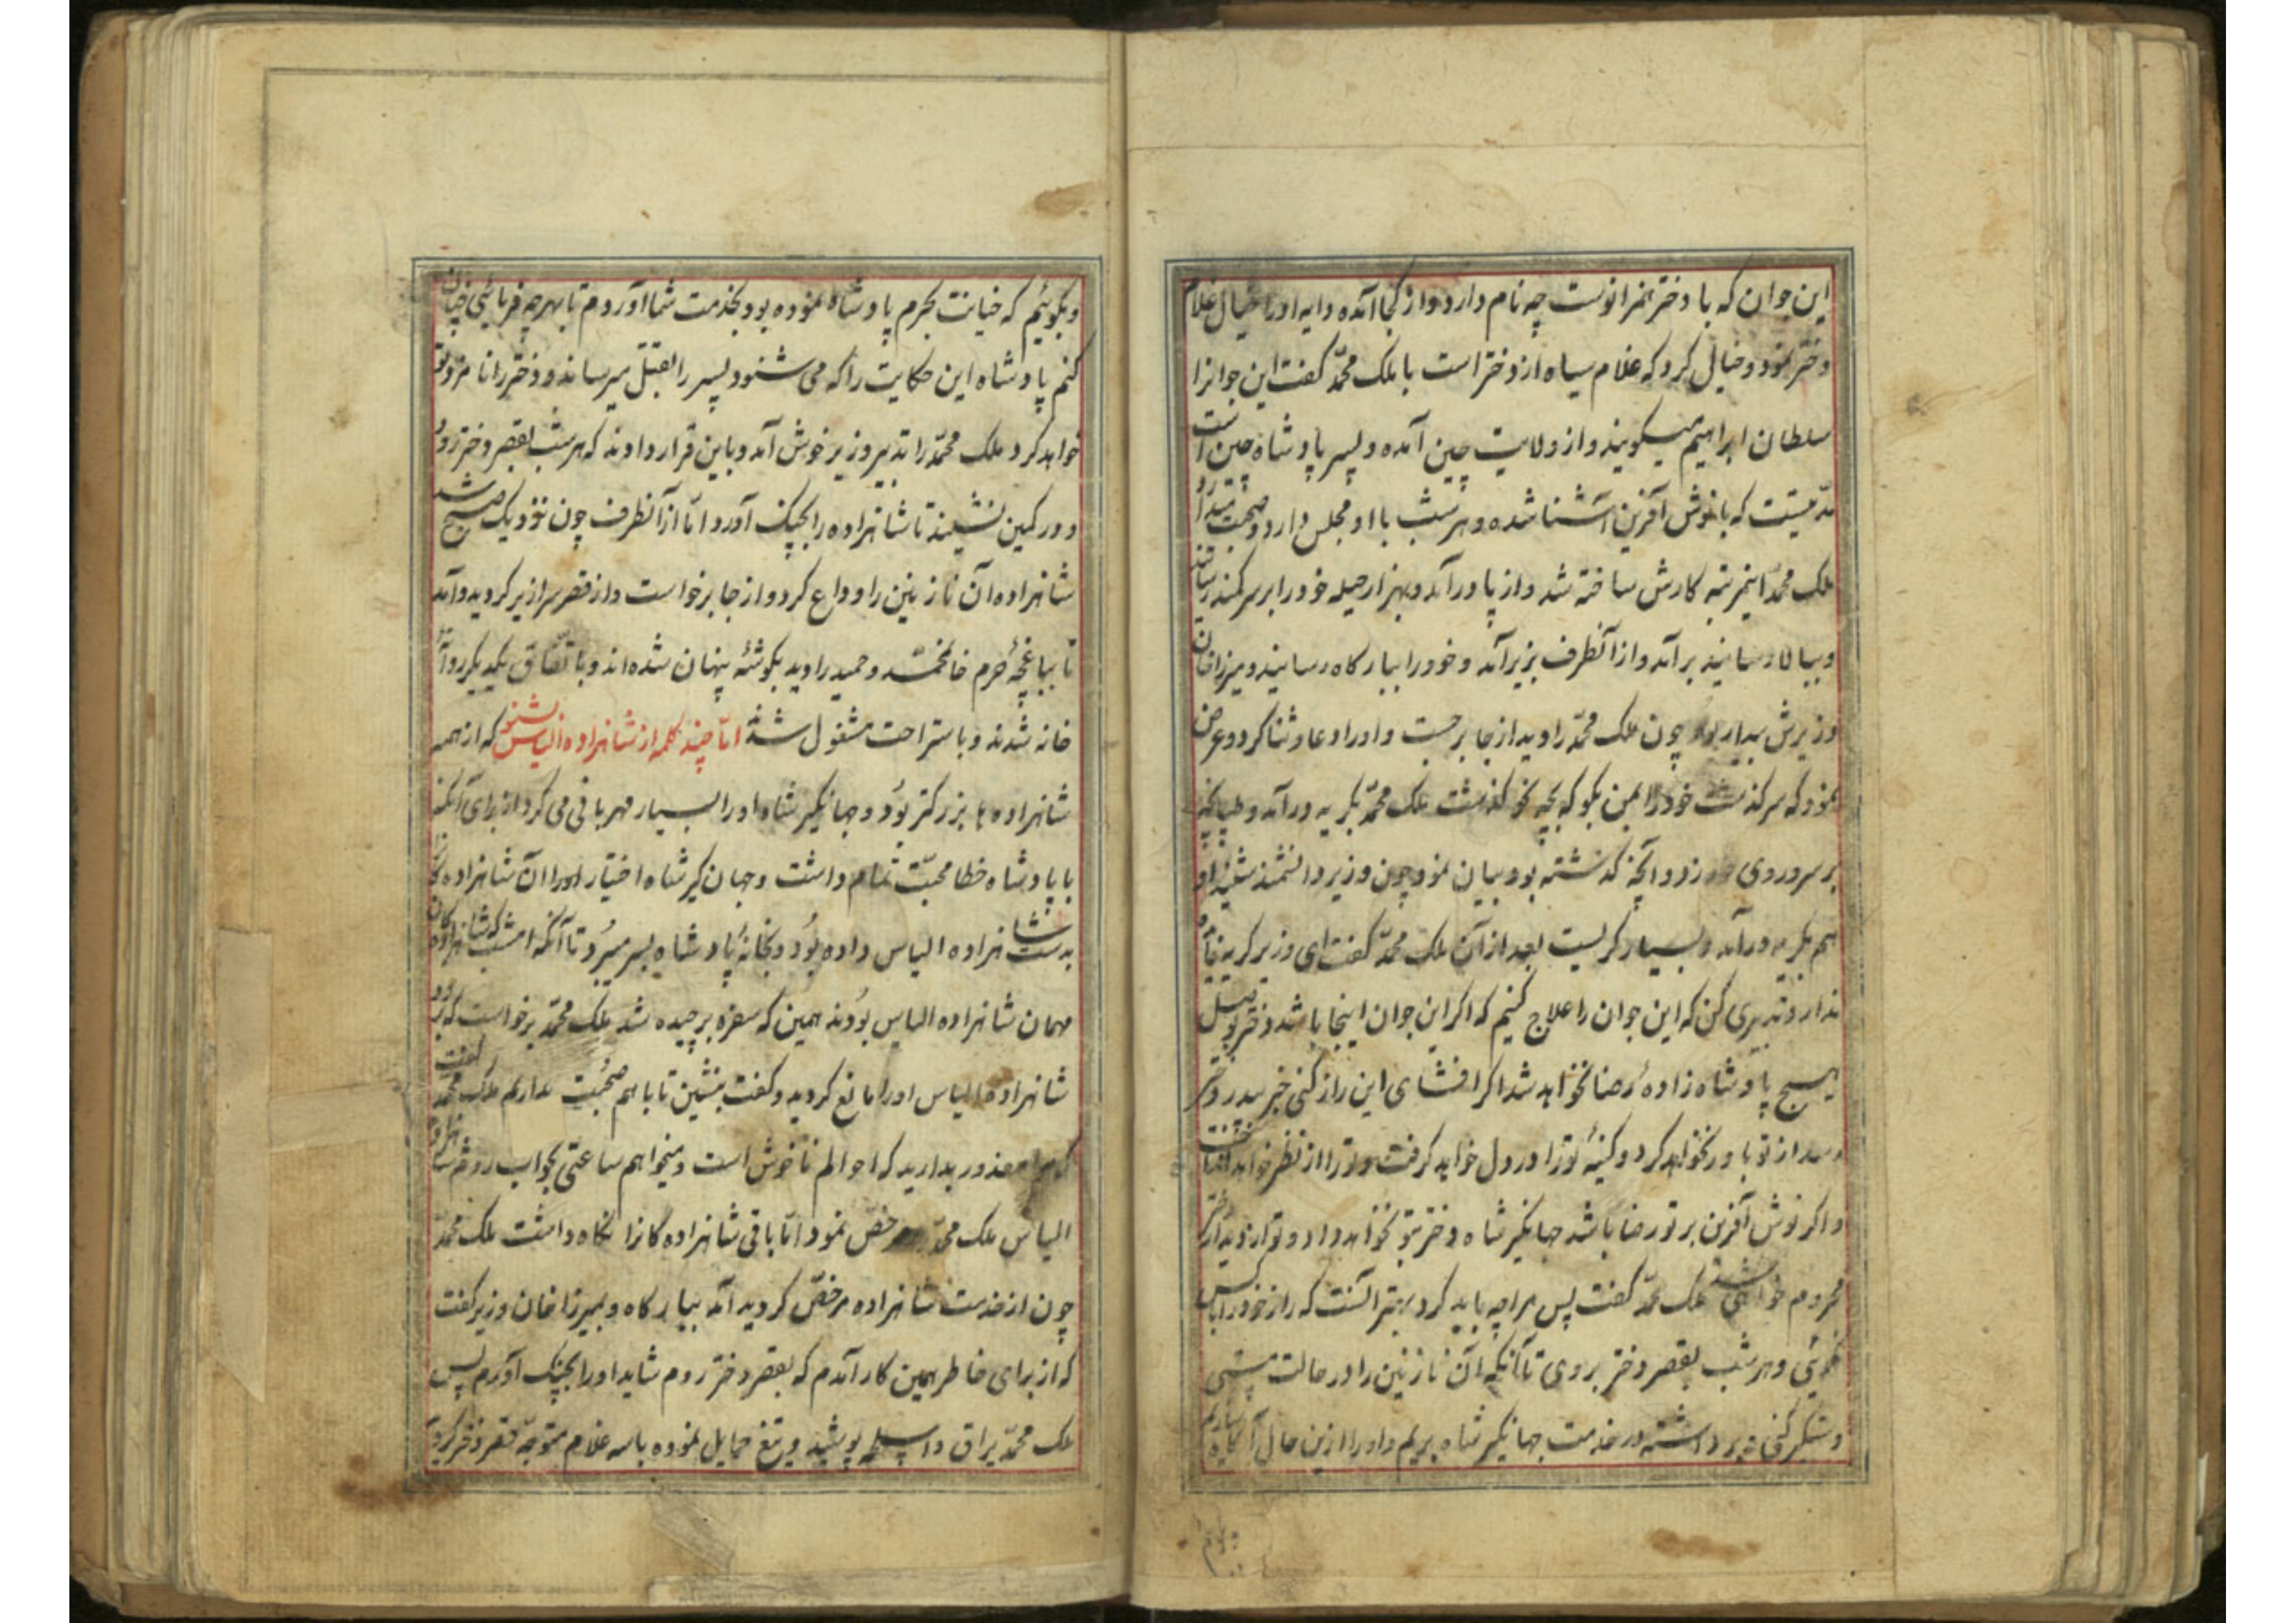 این جوان که با دختر همرانوست چه نام دارد و از کجا آمده دایه او را خیال غلام
دختر نمود و خیال کرد که غلام سیاه از دختر است با ملک محمّد گفت این جوانرا
سلطان ابراهیم میگویند و از ولایت چین آمده و پسر پادشاه چین است
مدّتیست که با نوش آفرین آشنا شده و هر شب با او مجلس دارد و صحبت میدارد
ملک محمّد اینمرتبه کارش ساخته شد و از پا درآمد و بهزار حیله خود را بر سر کمند رسانید
و ببالا رسانید برآمد و از آنطرف بزیر آمد و خود را ببارگاه رسانید و میرزا خان
وزیرش بیدار بود چون ملک محمّد را دید از جا برجست و او را دعا و ثنا کرد و عرض
نمود که سرگذشت خود را بمن بگو که بچه نحو گذشت ملک محمّد بگریه درآمد و طپانچه
بر سر و روی خود زد و آنچه گذشته بود بیان نمود چون وزیر دانشمند شنید او
هم بگریه درآمد و بسیار گریست بعد از آن ملک محمّد گفت ای وزیر گریه فایده
ندارد تدبیری کن که این جوان را علاج کنیم که اگر این جوان اینجا باشد دختر بوصل
هیچ پادشاه زاده رضا نخواهد شد اگر افشای این راز کنی خبر بپدر دختر
رسد از تو باور نخواهد کرد و کینهٔ تو را در دل خواهد گرفت و تو را از نظر خواهد انداخت
و اگر نوش آفرین بر تو رضا باشد جهانگیر شاه دختر بتو نخواهد داد و تو از دیدار دختر
محروم خواهی شد ملک محمّد گفت پس مرا چه باید کرد بهتر آنست که راز خود را بکس
نگوئی و هر شب بقصر دختر بروی تا آنکه آن نازنین را در حالت مستی
دستگیر کنی و برداشته در خدمت جهانگیر شاه بریم و او را ازین حال آگاه سازیم
و بگوئیم که خیانت بحرم پادشاه نموده بود بخدمت شما آوردم تا بهرچه فرمائی چنان
کنم پادشاه این حکایت را که می شنود پسر را بقتل میرساند و دختر را نامزد تو
خواهد کرد ملک محمّد را تدبیر وزیر خوش آمد و باین قرار دادند که هر شب بقصر دختر رود
و در کمین نشیند تا شاهزاده را بچنگ آورد امّا از آنطرف چون نزدیک صبح شد
شاهزاده آن نازنین را وداع کرد و از جا برخواست و از قصر سرازیر گردید و آمد
تا بباغچهٔ حرم خانمحمّد و حمید را دید بگوشهٔ پنهان شده اند و باتّفاق یکدیگر روانه
خانه شدند و باستراحت مشغول شدند امّا چند کلمه از شاهزاده الیاس بشنو که از همه
شاهزاده ها بزرگتر بود و جهانگیر شاه او را بسیار مهربانی می کرد از برای آنکه
با پادشاه خطا محبّت تمام داشت و جهان گیر شاه اختیار آن شاهزادها
بدست شاهزاده الیاس داده بود و بخانهٔ پادشاه بسر میبرد تا آنکه امشب که شاهزادگان
مهمان شاهزاده الیاس بودند همین که سفره برچیده شد ملک محمّد برخواست که برود
شاهزاده الیاس او را مانع گردید و گفت بنشین تا با هم صحبت بداریم ملک محمّد گفت
که مرا معذور بدارید که احوالم ناخوش است و میخواهم ساعتی بخواب روم شاهزاده
الیاس ملک محمّد را مرخّص نمود امّا باقی شاهزاده گانرا نگاه داشت ملک محمّد
چون از خدمت شاهزاده مرخّص گردید آمد ببارگاه و بمیرزا خان وزیر گفت
که از برای خاطر همین کار آمدم که بقصر دختر روم شاید او را بچنگ آورم پس
ملک محمّد یراق و اسلحه پوشید و تیغ حمایل نموده با سه غلام متوجّه قصر دختر گردید